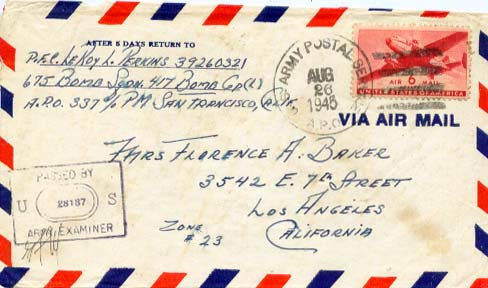 AFTER 5 DAYS RETURN TO
P.F.C. LEROY L. PERKINS 39260321
675 BOMB SQDN. 417 BOMB GP (L)
A.P.O. 337 % P.M. SAN FRANCISCO, CALIF.
U.S. ARMY POSTAL SERVICE
AUG
26
1945
A.P.O.
6
AIR MAIL
UNITED STATES OF AMERICA
VIA AIR MAIL
MRS FLORENCE A. BAKER
3542 E. 7th STREET
LOS ANGELES
CALIFORNIA
ZONE
# 23
PASSED BY
U 28187 S
ARMY EXAMINER